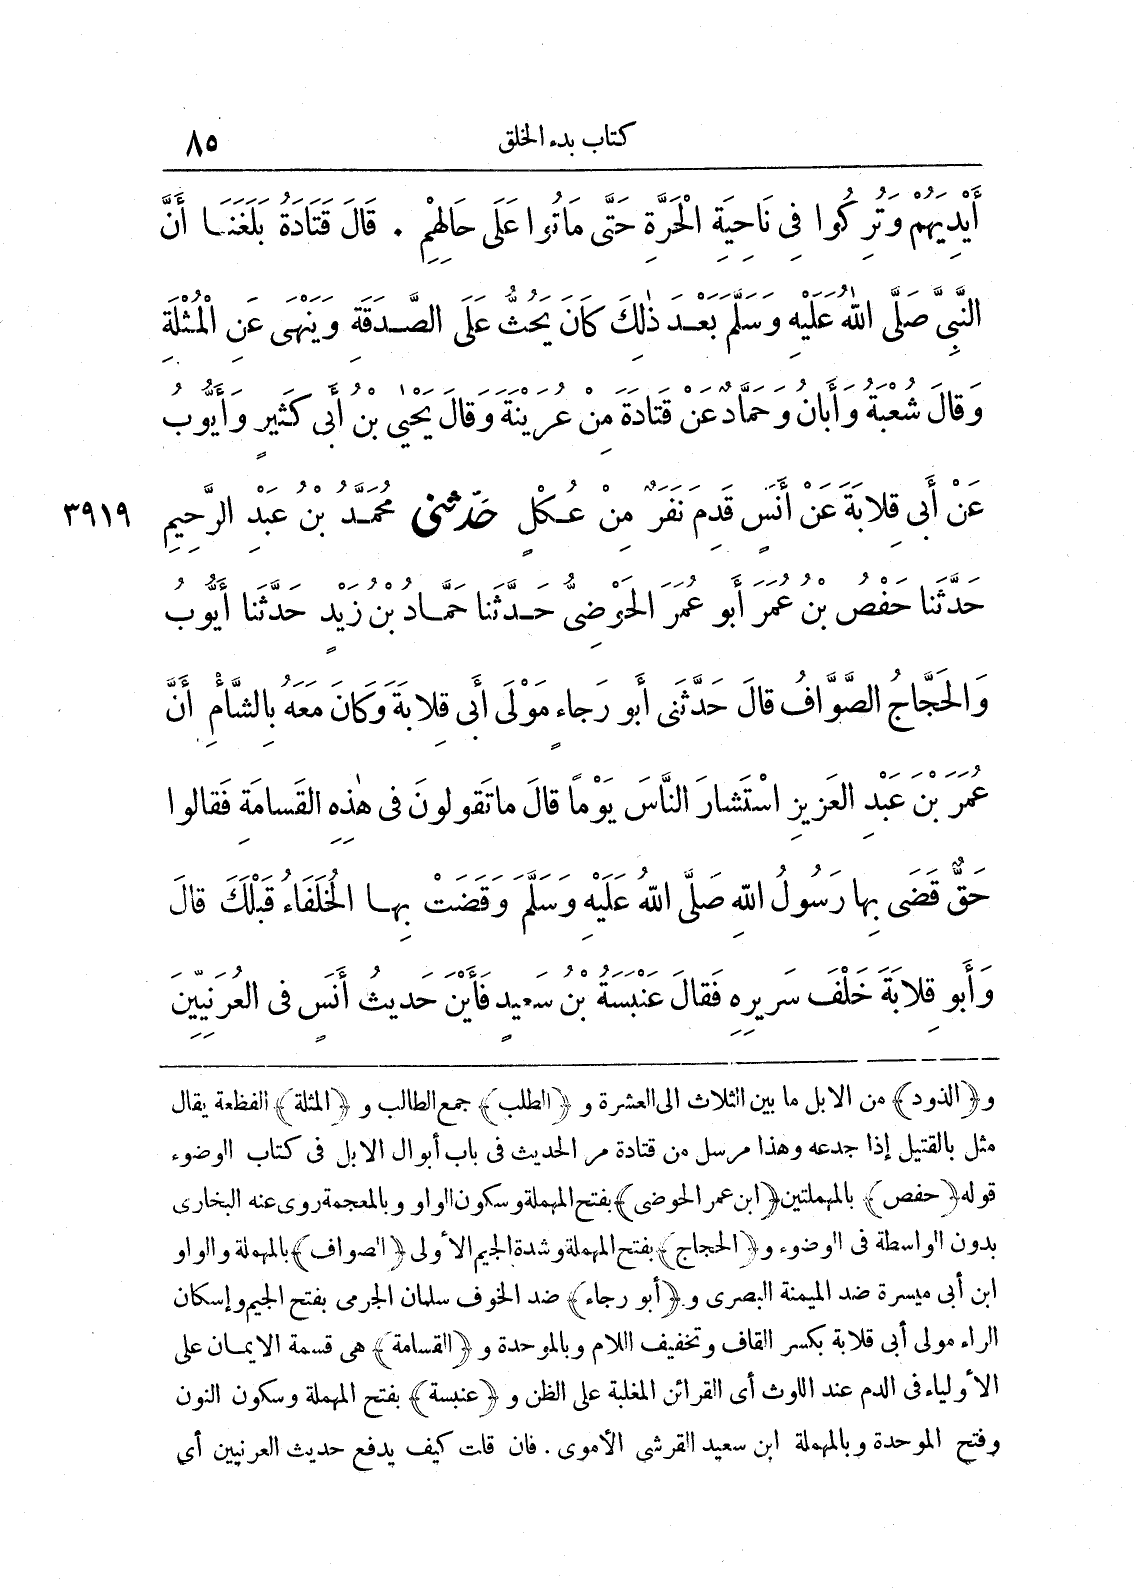 كتاب بدء الخلق ٨٥
أَيْدِيَهُمْ وَتُرِكُوا فِى نَاحِيَةِ الْحَرَّةِ حَتَّى مَاتُوا عَلَى حَالِهِمْ . قَالَ قَتَادَةُ بَلَغَنَا أَنَّ
النَّبِىَّ صَلَّى اللهُ عَلَيْهِ وَسَلَّمَ بَعْدَ ذٰلِكَ كَانَ يَحُثُّ عَلَى الصَّدَقَةِ وَيَنْهَى عَنِ الْمُثْلَةِ
وَقَالَ شُعْبَةُ وَأَبَانُ وَحَمَّادٌ عَنْ قَتَادَةَ مِنْ عُرَيْنَةَ وَقَالَ يَحْيٰى بْنُ أَبِى كَثِيرٍ وَأَيُّوبُ
عَنْ أَبِى قِلَابَةَ عَنْ أَنَسٍ قَدِمَ نَفَرٌ مِنْ عُكْلٍ حَدَّثَنِى مُحَمَّدُ بْنُ عَبْدِ الرَّحِيمِ ٣٩١٩
حَدَّثَنَا حَفْصُ بْنُ عُمَرَ أَبُو عُمَرَ الحَوْضِىُّ حَدَّثَنَا حَمَّادُ بْنُ زَيْدٍ حَدَّثَنَا أَيُّوبُ
وَالحَجَّاجُ الصَّوَّافُ قَالَ حَدَّثَنِى أَبُو رَجَاءٍ مَوْلَى أَبِى قِلَابَةَ وَكَانَ مَعَهُ بِالشَّأْمِ أَنَّ
عُمَرَ بْنَ عَبْدِ العَزِيزِ اسْتَشَارَ النَّاسَ يَوْماً قَالَ مَاتَقُولُونَ فِى هٰذِهِ القَسَامَةِ فَقَالُوا
حَقٌّ قَضَى بِهَا رَسُولُ اللهِ صَلَّى اللهُ عَلَيْهِ وَسَلَّمَ وَقَضَتْ بِهَا الخُلَفَاءُ قَبْلَكَ قَالَ
وَأَبُو قِلَابَةَ خَلْفَ سَرِيرِهِ فَقَالَ عَنْبَسَةُ بْنُ سَعِيدٍ فَأَيْنَ حَدِيثُ أَنَسٍ فِى العُرَنِيِّينَ
و﴿الذود﴾ من الابل ما بين الثلاث الى العشرة و ﴿الطلب﴾ جمع الطالب و ﴿المثلة﴾ الفظعة يقال
مثل بالقتيل إذا جدعه وهذا مرسل من قتادة مر الحديث فى باب أبوال الابل فى كتاب الوضوء
قوله ﴿حفص﴾ بالمهملتين ﴿ابن عمر الحوضى﴾ بفتح المهملة وسكون الواو وبالمعجمة روى عنه البخارى
بدون الواسطة فى الوضوء و﴿الحجاج﴾ بفتح المهملة وشدة الجيم الأولى ﴿الصواف﴾ بالمهملة والواو
ابن أبى ميسرة ضد الميمنة البصرى و﴿أبو رجاء﴾ ضد الخوف سلمان الجرمى بفتح الجيم وإسكان
الراء مولى أبى قلابة بكسر القاف وتخفيف اللام وبالموحدة و ﴿القسامة﴾ هى قسمة الايمان على
الأولياء فى الدم عند اللوث أى القرائن المغلبة على الظن و ﴿عنبسة﴾ بفتح المهملة وسكون النون
وفتح الموحدة وبالمهملة ابن سعيد القرشى الأموى . فان قلت كيف يدفع حديث العرنيين أى